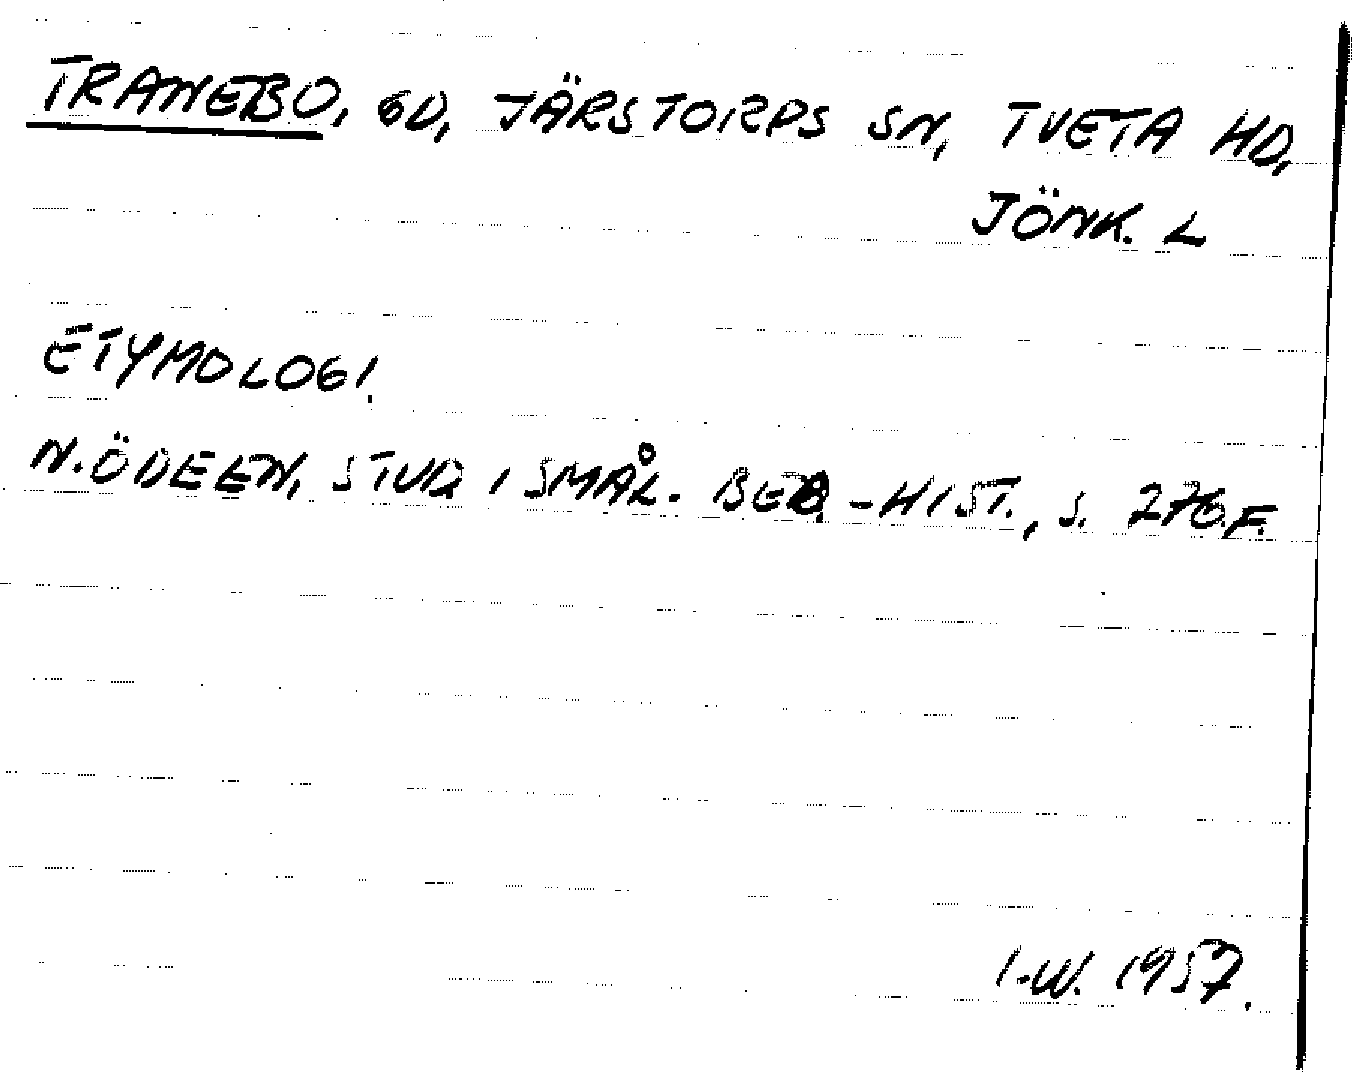 TRANEBO, GD, JÄRSTORPS SN, TVETA HD,
JÖNK. L
ETYMOLOGI.
N. ÖDEEN, STUD. I SMÅL. BEB.-HIST., S. 276.F.
I.W. 1957.